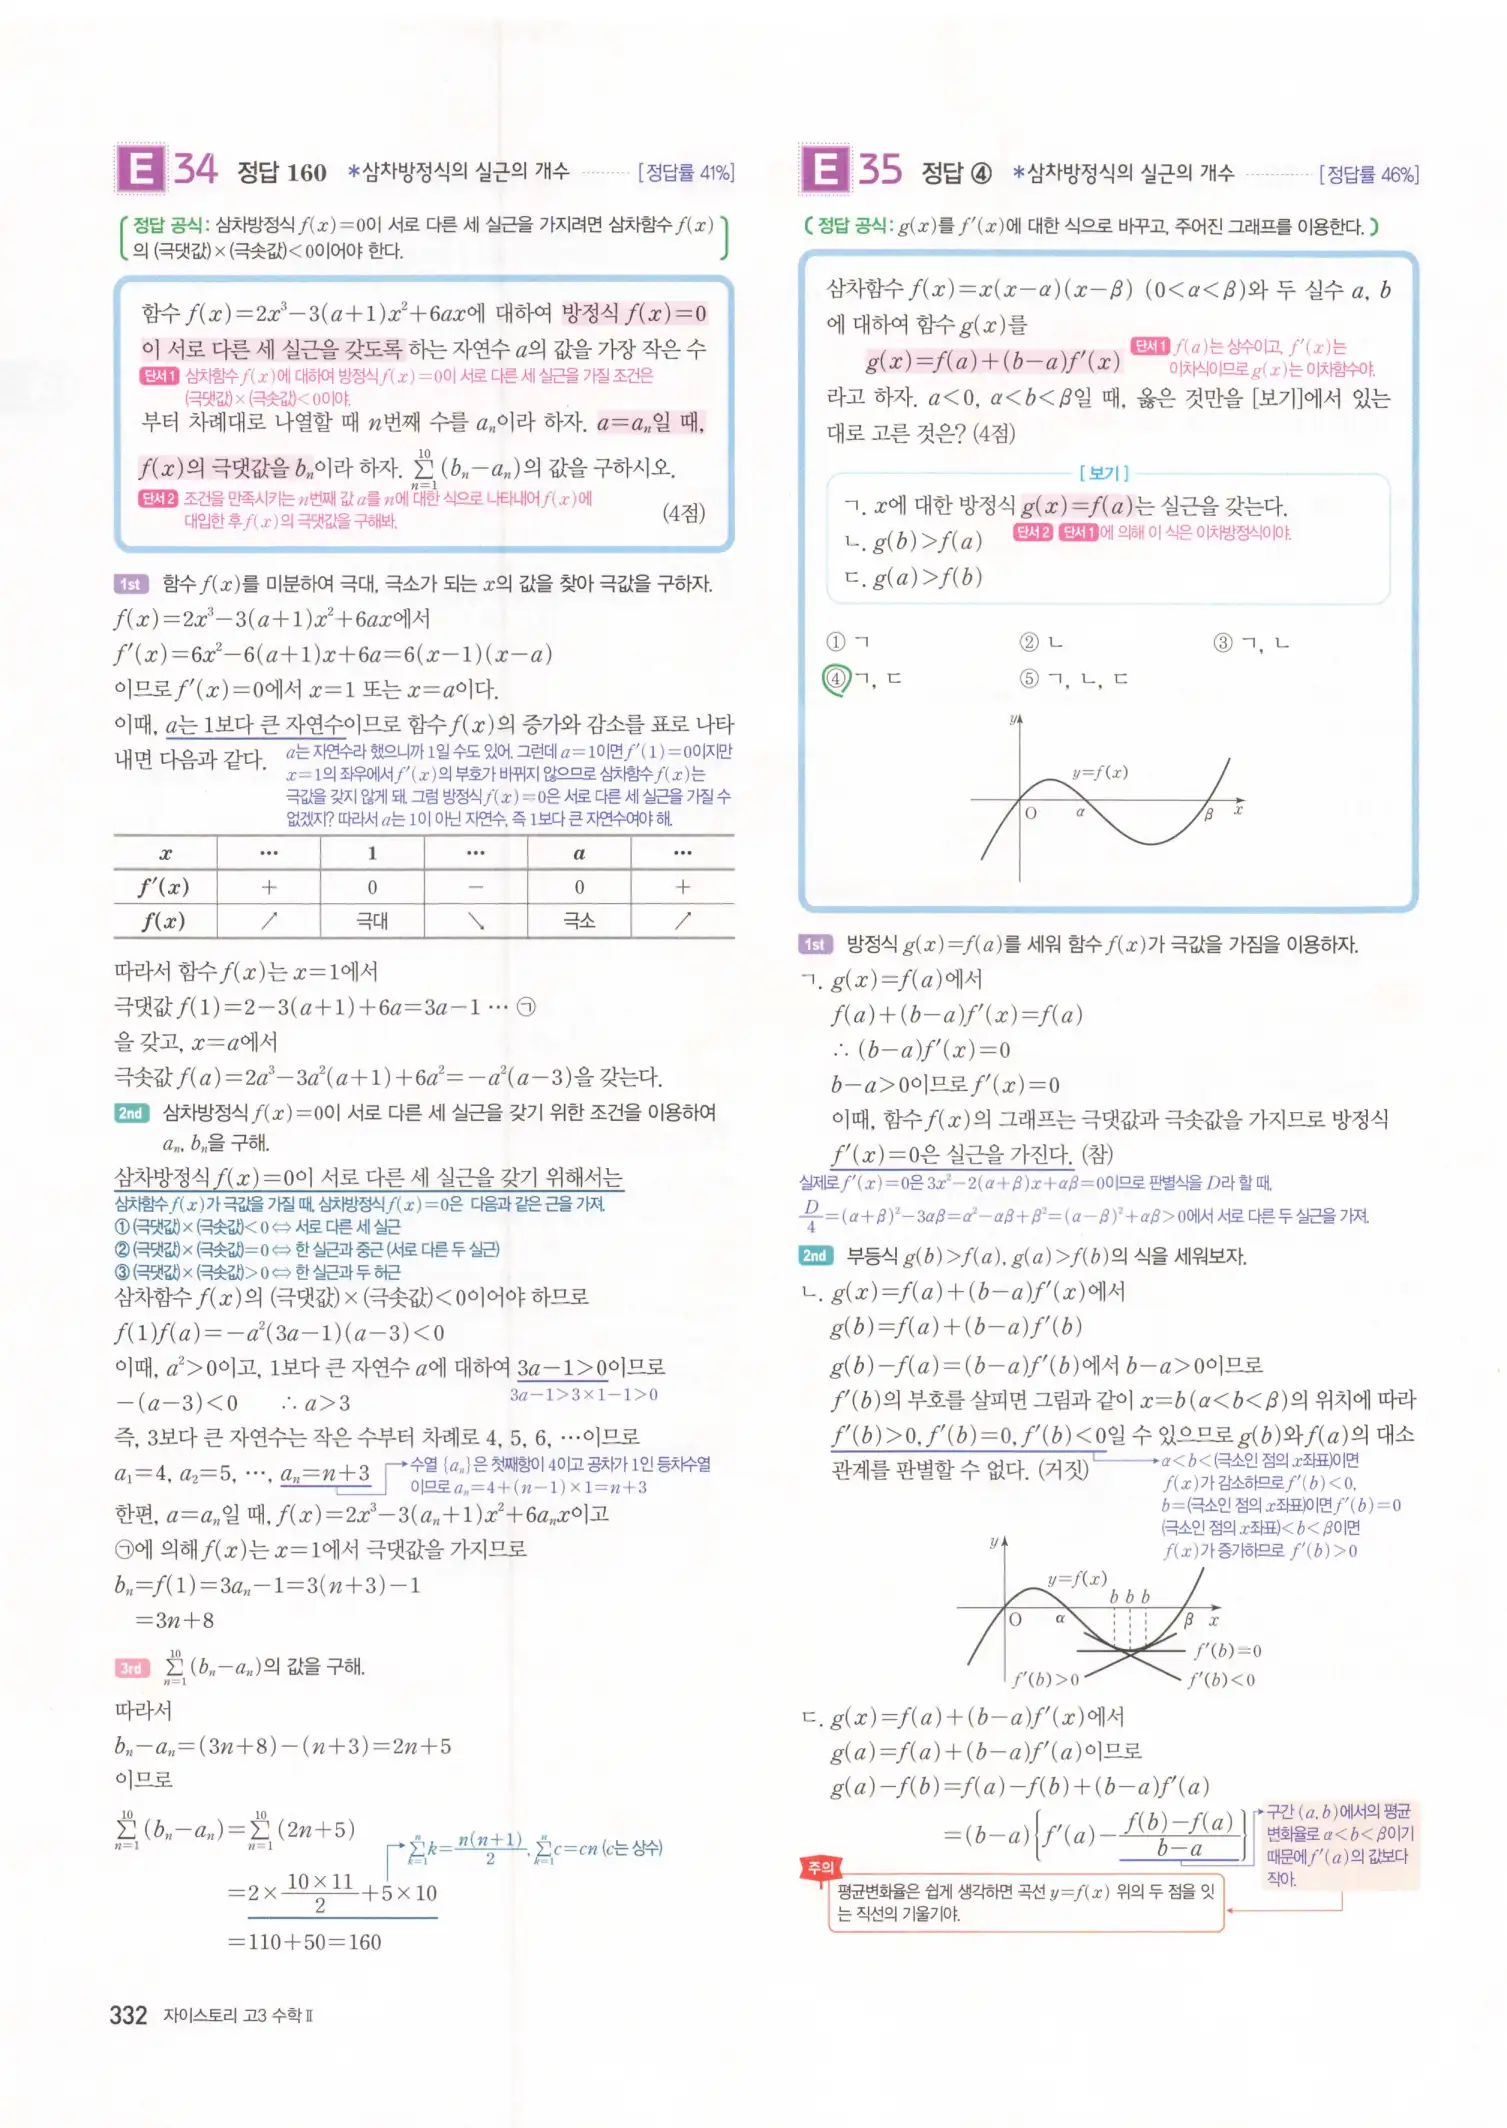 E 34 정답 160 *삼차방정식의 실근의 개수 [정답률 41%]
정답 공식: 삼차방정식 f(x)=0이 서로 다른 세 실근을 가지려면 삼차함수 f(x)
의 (극댓값)×(극솟값)<0이어야 한다.
함수 f(x)=2x³-3(a+1)x²+6ax에 대하여 방정식 f(x)=0
이 서로 다른 세 실근을 갖도록 하는 자연수 a의 값을 가장 작은 수
단서1 삼차함수 f(x)에 대하여 방정식 f(x)=0이 서로 다른 세 실근을 가질 조건은
(극댓값)×(극솟값)<0이야.
부터 차례대로 나열할 때 n번째 수를 aₙ이라 하자. a=aₙ일 때,
f(x)의 극댓값을 bₙ이라 하자. ∑_{n=1}^{10}(bₙ-aₙ)의 값을 구하시오.
단서2 조건을 만족시키는 n번째 값 a를 n에 대한 식으로 나타내어 f(x)에
대입한 후 f(x)의 극댓값을 구해봐.
(4점)
1st 함수 f(x)를 미분하여 극대, 극소가 되는 x의 값을 찾아 극값을 구하자.
f(x)=2x³-3(a+1)x²+6ax에서
f′(x)=6x²-6(a+1)x+6a=6(x-1)(x-a)
이므로 f′(x)=0에서 x=1 또는 x=a이다.
이때, a는 1보다 큰 자연수이므로 함수 f(x)의 증가와 감소를 표로 나타
내면 다음과 같다.
a는 자연수라 했으니까 1일 수도 있어. 그런데 a=1이면 f′(1)=0이지만
x=1의 좌우에서 f′(x)의 부호가 바뀌지 않으므로 삼차함수 f(x)는
극값을 갖지 않게 돼. 그럼 방정식 f(x)=0은 서로 다른 세 실근을 가질 수
없겠지? 따라서 a는 1이 아닌 자연수, 즉 1보다 큰 자연수여야 해.
x ⋯ 1 ⋯ a ⋯
f′(x) + 0 - 0 +
f(x) ↗ 극대 ↘ 극소 ↗
따라서 함수 f(x)는 x=1에서
극댓값 f(1)=2-3(a+1)+6a=3a-1 ⋯ ㉠
을 갖고, x=a에서
극솟값 f(a)=2a³-3a²(a+1)+6a²=-a²(a-3)을 갖는다.
2nd 삼차방정식 f(x)=0이 서로 다른 세 실근을 갖기 위한 조건을 이용하여
aₙ, bₙ을 구해.
삼차방정식 f(x)=0이 서로 다른 세 실근을 갖기 위해서는
삼차함수 f(x)가 극값을 가질 때, 삼차방정식 f(x)=0은 다음과 같은 근을 가져.
① (극댓값)×(극솟값)<0 ⇔ 서로 다른 세 실근
② (극댓값)×(극솟값)=0 ⇔ 한 실근과 중근 (서로 다른 두 실근)
③ (극댓값)×(극솟값)>0 ⇔ 한 실근과 두 허근
삼차함수 f(x)의 (극댓값)×(극솟값)<0이어야 하므로
f(1)f(a)=-a²(3a-1)(a-3)<0
이때, a²>0이고, 1보다 큰 자연수 a에 대하여 3a-1>0이므로
3a-1>3×1-1>0
-(a-3)<0 ∴ a>3
즉, 3보다 큰 자연수는 작은 수부터 차례로 4, 5, 6, ⋯이므로
a₁=4, a₂=5, ⋯, aₙ=n+3
수열 {aₙ}은 첫째항이 4이고 공차가 1인 등차수열
이므로 aₙ=4+(n-1)×1=n+3
한편, a=aₙ일 때, f(x)=2x³-3(aₙ+1)x²+6aₙx이고
㉠에 의해 f(x)는 x=1에서 극댓값을 가지므로
bₙ=f(1)=3aₙ-1=3(n+3)-1
=3n+8
3rd ∑_{n=1}^{10}(bₙ-aₙ)의 값을 구해.
따라서
bₙ-aₙ=(3n+8)-(n+3)=2n+5
이므로
∑_{n=1}^{10}(bₙ-aₙ)=∑_{n=1}^{10}(2n+5)
∑_{k=1}^{n}k=n(n+1)/2, ∑_{k=1}^{n}c=cn (c는 상수)
=2×(10×11)/2+5×10
=110+50=160
332 자이스토리 고3 수학Ⅱ
E 35 정답 ④ *삼차방정식의 실근의 개수 [정답률 46%]
(정답 공식: g(x)를 f′(x)에 대한 식으로 바꾸고, 주어진 그래프를 이용한다.)
삼차함수 f(x)=x(x-α)(x-β) (0<α<β)와 두 실수 a, b
에 대하여 함수 g(x)를
g(x)=f(a)+(b-a)f′(x)
단서1 f(a)는 상수이고, f′(x)는
이차식이므로 g(x)는 이차함수야.
라고 하자. a<0, α<b<β일 때, 옳은 것만을 [보기]에서 있는
대로 고른 것은? (4점)
[보기]
ㄱ. x에 대한 방정식 g(x)=f(a)는 실근을 갖는다.
단서2 단서1에 의해 이 식은 이차방정식이야.
ㄴ. g(b)>f(a)
ㄷ. g(a)>f(b)
① ㄱ ② ㄴ ③ ㄱ, ㄴ
④ ㄱ, ㄷ ⑤ ㄱ, ㄴ, ㄷ
y
y=f(x)
O α β x
1st 방정식 g(x)=f(a)를 세워 함수 f(x)가 극값을 가짐을 이용하자.
ㄱ. g(x)=f(a)에서
f(a)+(b-a)f′(x)=f(a)
∴ (b-a)f′(x)=0
b-a>0이므로 f′(x)=0
이때, 함수 f(x)의 그래프는 극댓값과 극솟값을 가지므로 방정식
f′(x)=0은 실근을 가진다. (참)
실제로 f′(x)=0은 3x²-2(α+β)x+αβ=0이므로 판별식을 D라 할 때,
D/4=(α+β)²-3αβ=α²-αβ+β²=(α-β)²+αβ>0에서 서로 다른 두 실근을 가져.
2nd 부등식 g(b)>f(a), g(a)>f(b)의 식을 세워보자.
ㄴ. g(x)=f(a)+(b-a)f′(x)에서
g(b)=f(a)+(b-a)f′(b)
g(b)-f(a)=(b-a)f′(b)에서 b-a>0이므로
f′(b)의 부호를 살피면 그림과 같이 x=b(α<b<β)의 위치에 따라
f′(b)>0, f′(b)=0, f′(b)<0일 수 있으므로 g(b)와 f(a)의 대소
관계를 판별할 수 없다. (거짓)
α<b<(극소인 점의 x좌표)이면
f(x)가 감소하므로 f′(b)<0,
b=(극소인 점의 x좌표)이면 f′(b)=0
(극소인 점의 x좌표)<b<β이면
f(x)가 증가하므로 f′(b)>0
y
y=f(x)
b b b
O α β x
f′(b)=0
f′(b)>0 f′(b)<0
ㄷ. g(x)=f(a)+(b-a)f′(x)에서
g(a)=f(a)+(b-a)f′(a)이므로
g(a)-f(b)=f(a)-f(b)+(b-a)f′(a)
=(b-a){f′(a)-(f(b)-f(a))/(b-a)}
구간 (a, b)에서의 평균
변화율로 α<b<β이기
때문에 f′(a)의 값보다
작아.
주의
평균변화율은 쉽게 생각하면 곡선 y=f(x) 위의 두 점을 잇
는 직선의 기울기야.